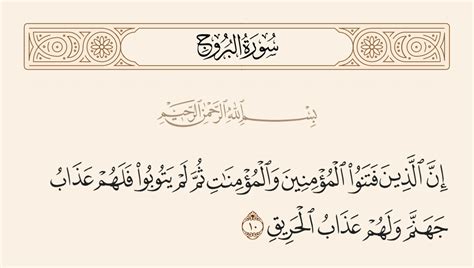 سُورَةُ البُرُوجِ
بِسْمِ اللَّهِ الرَّحْمَٰنِ الرَّحِيمِ
إِنَّ الَّذِينَ فَتَنُوا الْمُؤْمِنِينَ وَالْمُؤْمِنَاتِ ثُمَّ لَمْ يَتُوبُوا فَلَهُمْ عَذَابُ
جَهَنَّمَ وَلَهُمْ عَذَابُ الْحَرِيقِ ١٠